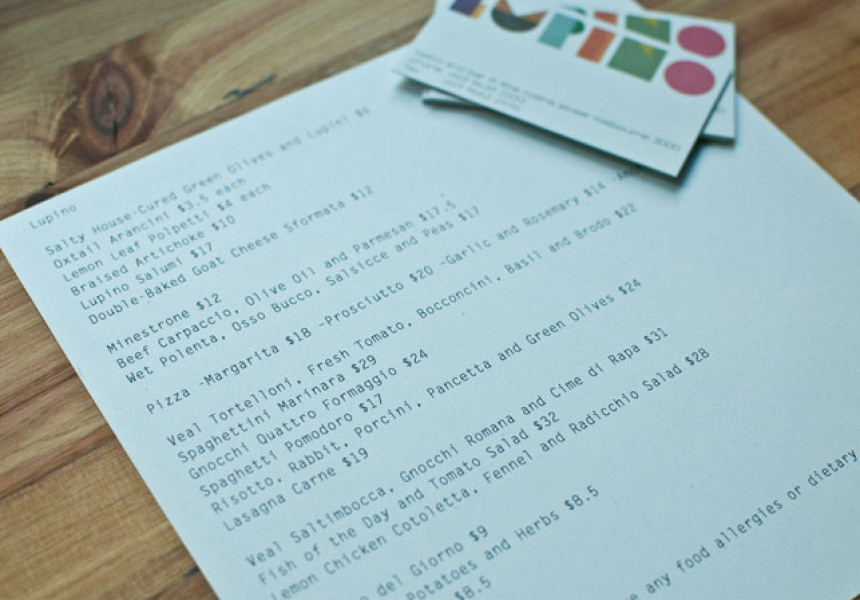 LUPINO
melbourne 3000
Lupino
Salty House-Cured Green Olives and Lupini $6
Oxtail Arancini $3.5 each
Lemon Leaf Polpetti $4 each
Braised Artichoke $10
Lupino Salumi $17
Double-Baked Goat Cheese Sformata $12
Minestrone $12
Beef Carpaccio, Olive Oil and Parmesan $17.5
Wet Polenta, Osso Bucco, Salsicce and Peas $17
Pizza -Margarita $18 -Prosciutto $20 -Garlic and Rosemary $14
Veal Tortelloni, Fresh Tomato, Bocconcini, Basil and Brodo $22
Spaghettini Marinara $29
Gnocchi Quattro Formaggio $24
Spaghetti Pomodoro $17
Risotto, Rabbit, Porcini, Pancetta and Green Olives $24
Lasagna Carne $19
Veal Saltimbocca, Gnocchi Romana and Cime di Rapa $31
Fish of the Day and Tomato Salad $32
Lemon Chicken Cotoletta, Fennel and Radicchio Salad $28
del Giorno $9
Potatoes and Herbs $8.5
$8.5
any food allergies or dietary